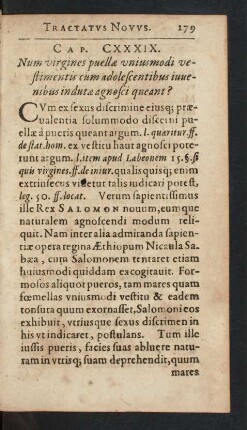 TRACTATVS NOVVS. 179
CAP. CXXXIX.
Num virgines puellæ vniusmodi ve-
stimentis cum adolescentibus iuue-
nibus indutæ agnosci queant?
CVm ex sexus discrimine eiusq; præ-
ualentia solummodo discerni pu-
ellæ à pueris queant argum. l. quæritur. ff.
de stat. hom. ex vestitu haut agnosci pote-
runt argum. l. item apud Labeonem 15. §. si
quis virgines. ff. de iniur. qualis quisq; enim
extrinsecus videtur talis iudicari potest,
leg. 50. ff. locat. Verum sapientissimus
ille Rex SALOMON nouum, eumque
naturalem agnoscendi modum reli-
quit. Nam inter alia admiranda sapien-
tiæ opera regina Æthiopum Nicaula Sa-
bæa, cum Salomonem tentaret etiam
huiusmodi quiddam excogitauit. For-
mosos aliquot pueros, tam mares quam
fœmellas vniusmodi vestitu & eadem
tonsuta quum exornasset, Salomoni eos
exhibuit, vtriusque sexus discrimen in
his vt indicaret, postulans. Tum ille
iussis pueris, facies suas abluere natu-
ram in vtrisq; suam deprehendit, quum
mares